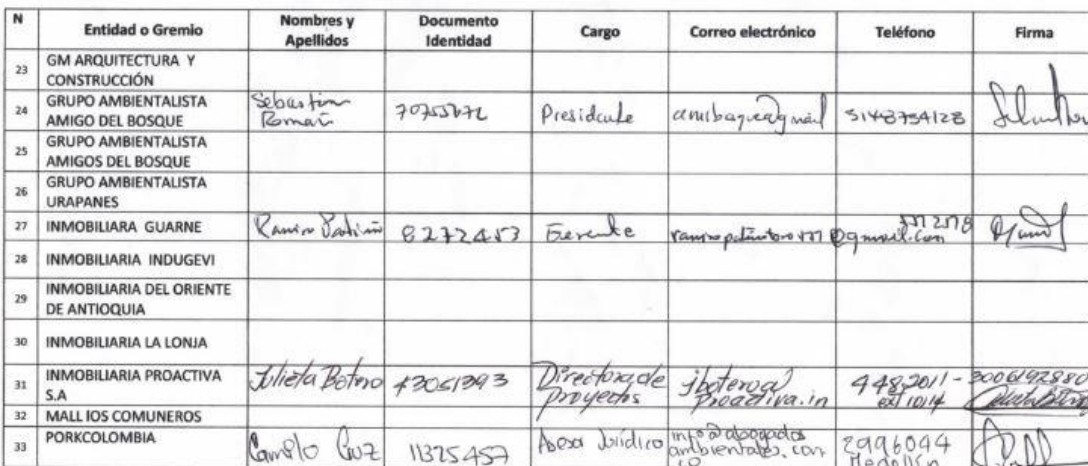 N Entidad o Gremio Nombres y Apellidos Documento Identidad Cargo Correo electrónico Teléfono Firma
23 GM ARQUITECTURA Y
CONSTRUCCIÓN
24 GRUPO AMBIENTALISTA
AMIGO DEL BOSQUE
Sebastian
Presidente
25 GRUPO AMBIENTALISTA
AMIGOS DEL BOSQUE
26 GRUPO AMBIENTALISTA
URAPANES
27 INMOBILIARA GUARNE Ramiro Patiño 8272453 Gerente
28 INMOBILIARIA INDUGEVI
29 INMOBILIARIA DEL ORIENTE
DE ANTIOQUIA
30 INMOBILIARIA LA LONJA
31 INMOBILIARIA PROACTIVA
S.A
Julieta Botero 43051393
Directora de
proyectos
jbotero@
proactiva.in
448 2011 - 3006192880
ext 1014
32 MALL IOS COMUNEROS
33 PORKCOLOMBIA Camilo 11325457 Asesor Jurídico
info@abogados
ambientales.com
2996044
Medellín